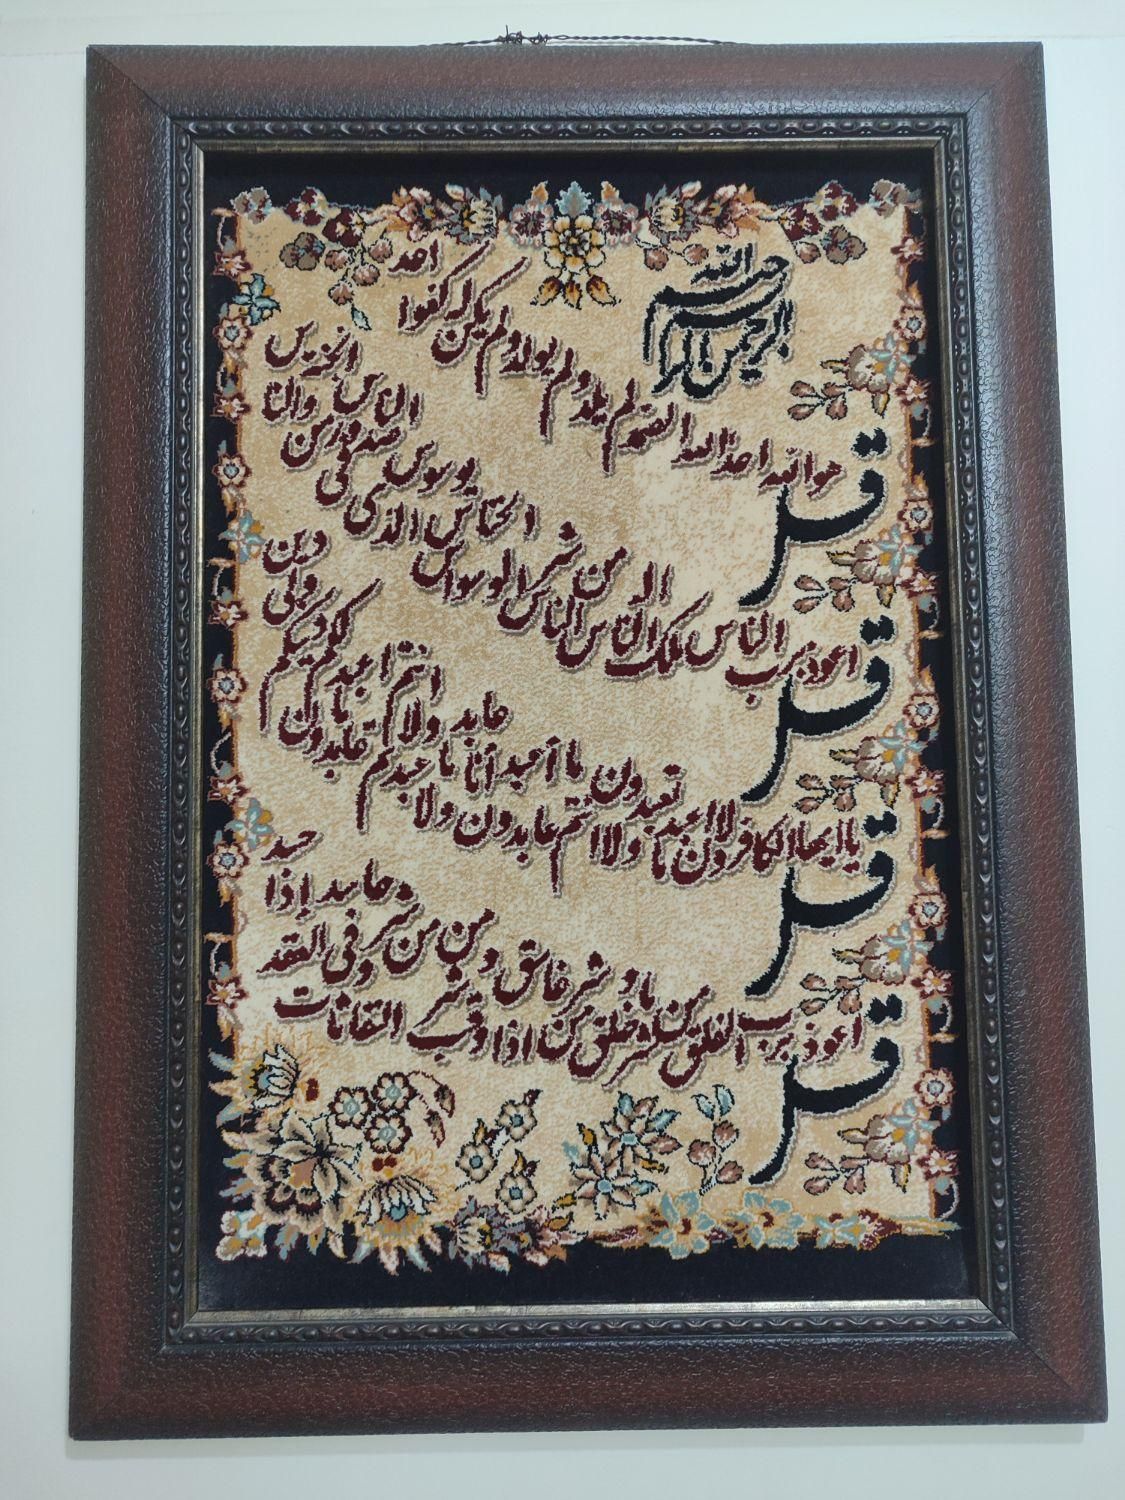 بسم الله
الرحمن الرحیم
قل هو الله احد الله الصمد لم یلد ولم یولد ولم یکن له کفوا احد
قل اعوذ برب الناس ملک الناس اله الناس من شر الوسواس الخناس الذی یوسوس فی صدور الناس من الجنة والناس
قل یا ایها الکافرون لا اعبد ما تعبدون ولا انتم عابدون ما أعبد ولا أنا عابد ما عبدتم ولا انتم عابدون ما اعبد لکم دینکم ولی دین
قل اعوذ برب الفلق من شر ما خلق و من شر غاسق اذا وقب و من شر النفاثات فی العقد و من شر حاسد إذا حسد